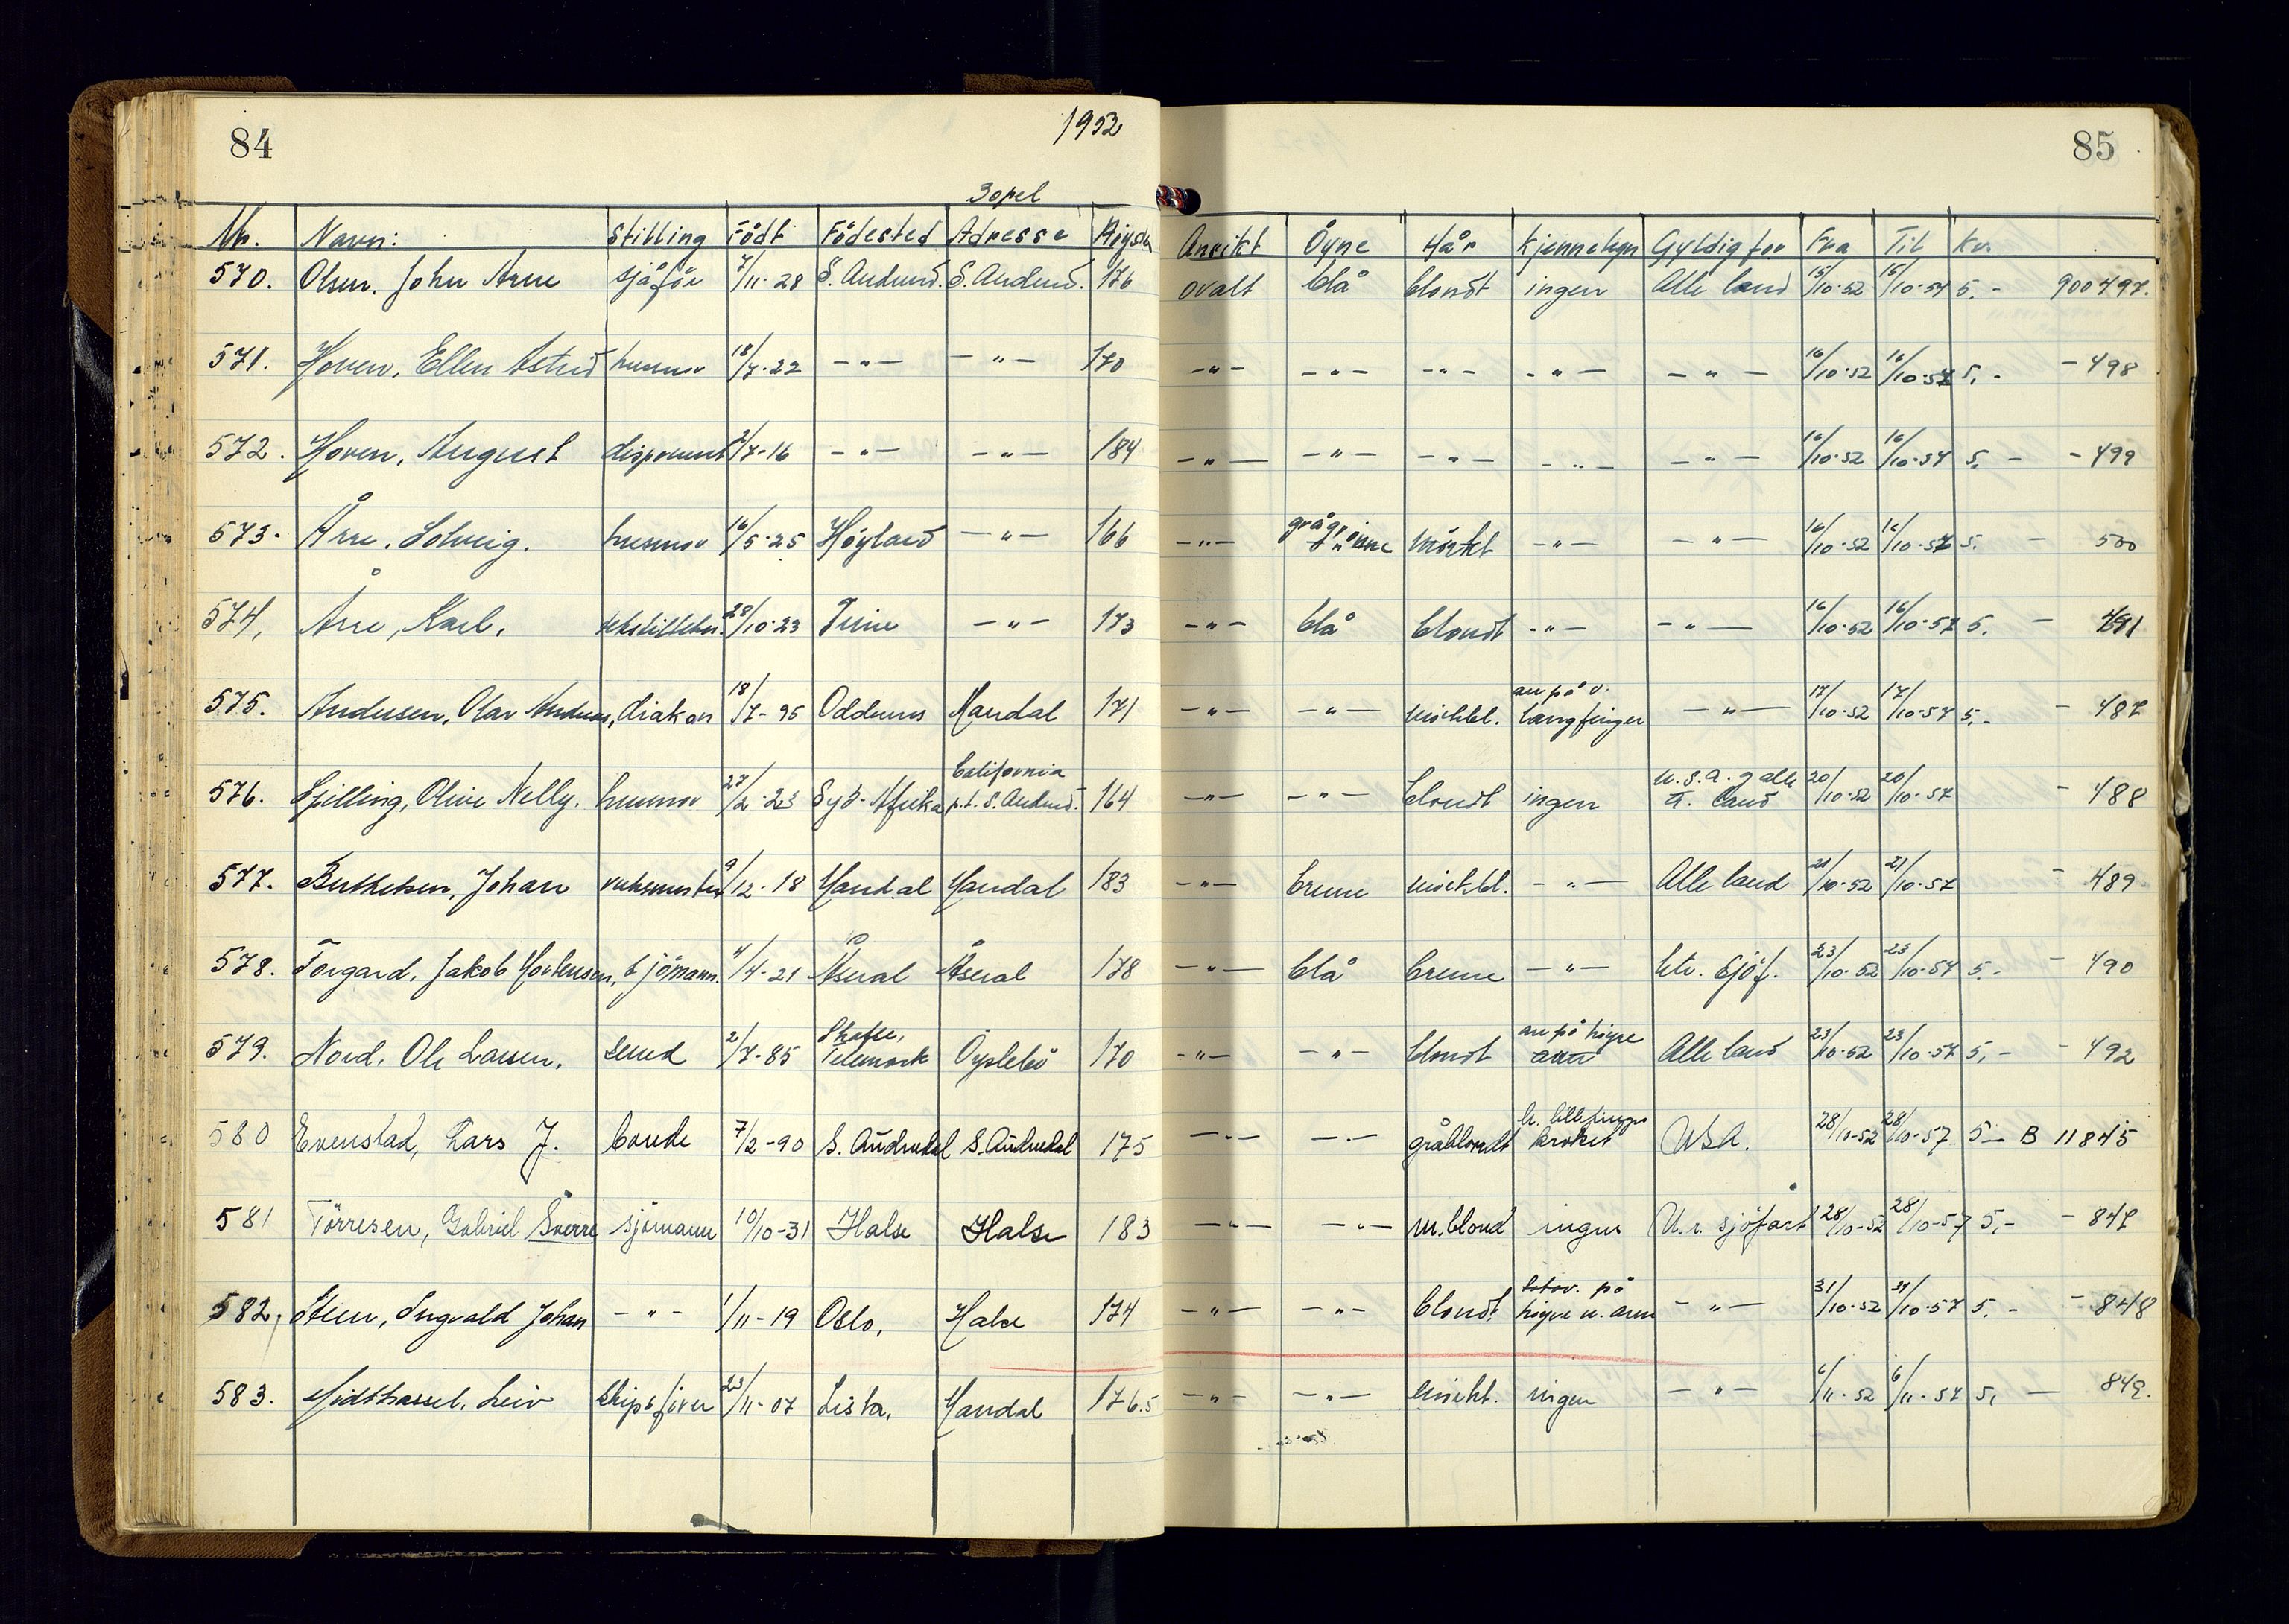 84 1952 85
Bopel
Nr. Navn: Stilling Födt Födested Adresse Höyde Ansikt Öyne Hår Kjennetegn Gyldig for Fra Til Kr.
570. Olsen, John Arne sjåför 7/11-28 S. Audned. S. Audned. 176 ovalt blå blondt ingen Alle land 15/10-52 15/10-57 5,- 900497.
571. Hoven, Ellen Astrid husmor 18/7-22 -"- -"- 170 -"- -"- -"- -"- -"- 16/10-52 16/10-57 5,- -498
572. Hoven, August disponent 2/7-16 -"- -"- 184 -"- -"- -"- -"- -"- 16/10-52 16/10-57 5,- -499
grå
573. Åre, Solveig. husmor 16/5-25 Höyland -"- 166 -"- mörkt -"- -"- 16/10-52 16/10-57 5,- 500
574. Åre, Karl, 28/10-23 Time -"- 173 -"- blå blondt -"- -"- 16/10-52 16/10-57 5,- 491
arr på v.
575. Andersen, Olav diakon 18/7-95 Oddernes Mandal 171 -"- -"- mörkbl. langfinger -"- 17/10-52 17/10-57 5,- - 487
California U.S.A. og alle
576. Spilling, Olive Nelly. husmor 27/2-23 Syd-Afrika p.t. S. Audned. 164 -"- -"- blondt ingen a. land 20/10-52 20/10-57 - 488
577. Berthelsen, Johan 9/12-18 Mandal Mandal 183 -"- brune mörkbl. -"- Alle land 21/10-52 21/10-57 - 489
578. Torgard, Jakob Mortensen, sjömann. 4/4-21 Åseral Åseral 178 -"- blå brune -"- utr. sjöf. 23/10-52 23/10-57 5,- - 490
Skafse, arr på höyre
579. Nord, Ole Larsen, 2/7-85 Telemark Öyslebö 170 -"- -"- blondt arm Alle land 23/10-52 23/10-57 5,- - 492
h. lillefinger
580 Evenstad, Lars J. bonde 7/2-90 S. Audnedal S. Audnedal 175 -"- -"- gråblondt kroket USA. 28/10-52 28/10-57 5- B 11845
581 Törresen, Gabriel Sverre sjömann 10/10-31 Halse Halse 183 -"- -"- m.blond ingen U.r. sjöfart 28/10-52 28/10-57 5,- - 847
tatov. på
582. Steen, Ingvald Johan -"- 1/11-19 Oslo, Halse 174 -"- -"- blondt höyre u. arm -"- 31/10-52 31/10-57 5,- - 848
583. Midthassel, Leiv skipsförer 23/11-07 Lista, Mandal 176.5 -"- -"- mörkt. ingen -"- 6/11-52 6/11-57 5,- 849.